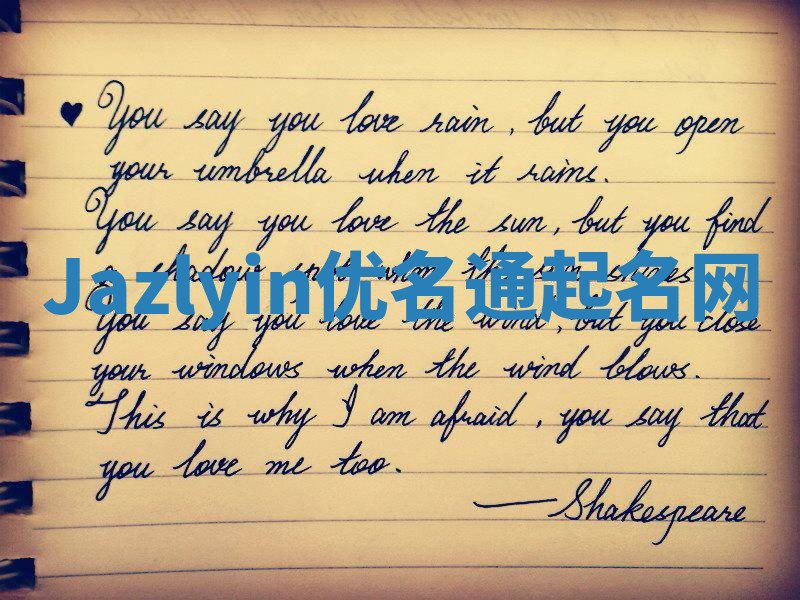 ♥ You say you love rain, but you open
your umbrella when it rains.
You say you love the sun, but you find
a shadow spot when the sun shines
Jazlyin优名通起名网
You say you love the wind, but you close
your windows when the wind blows.
This is why I am afraid, you say that
you love me too.
—Shakespeare